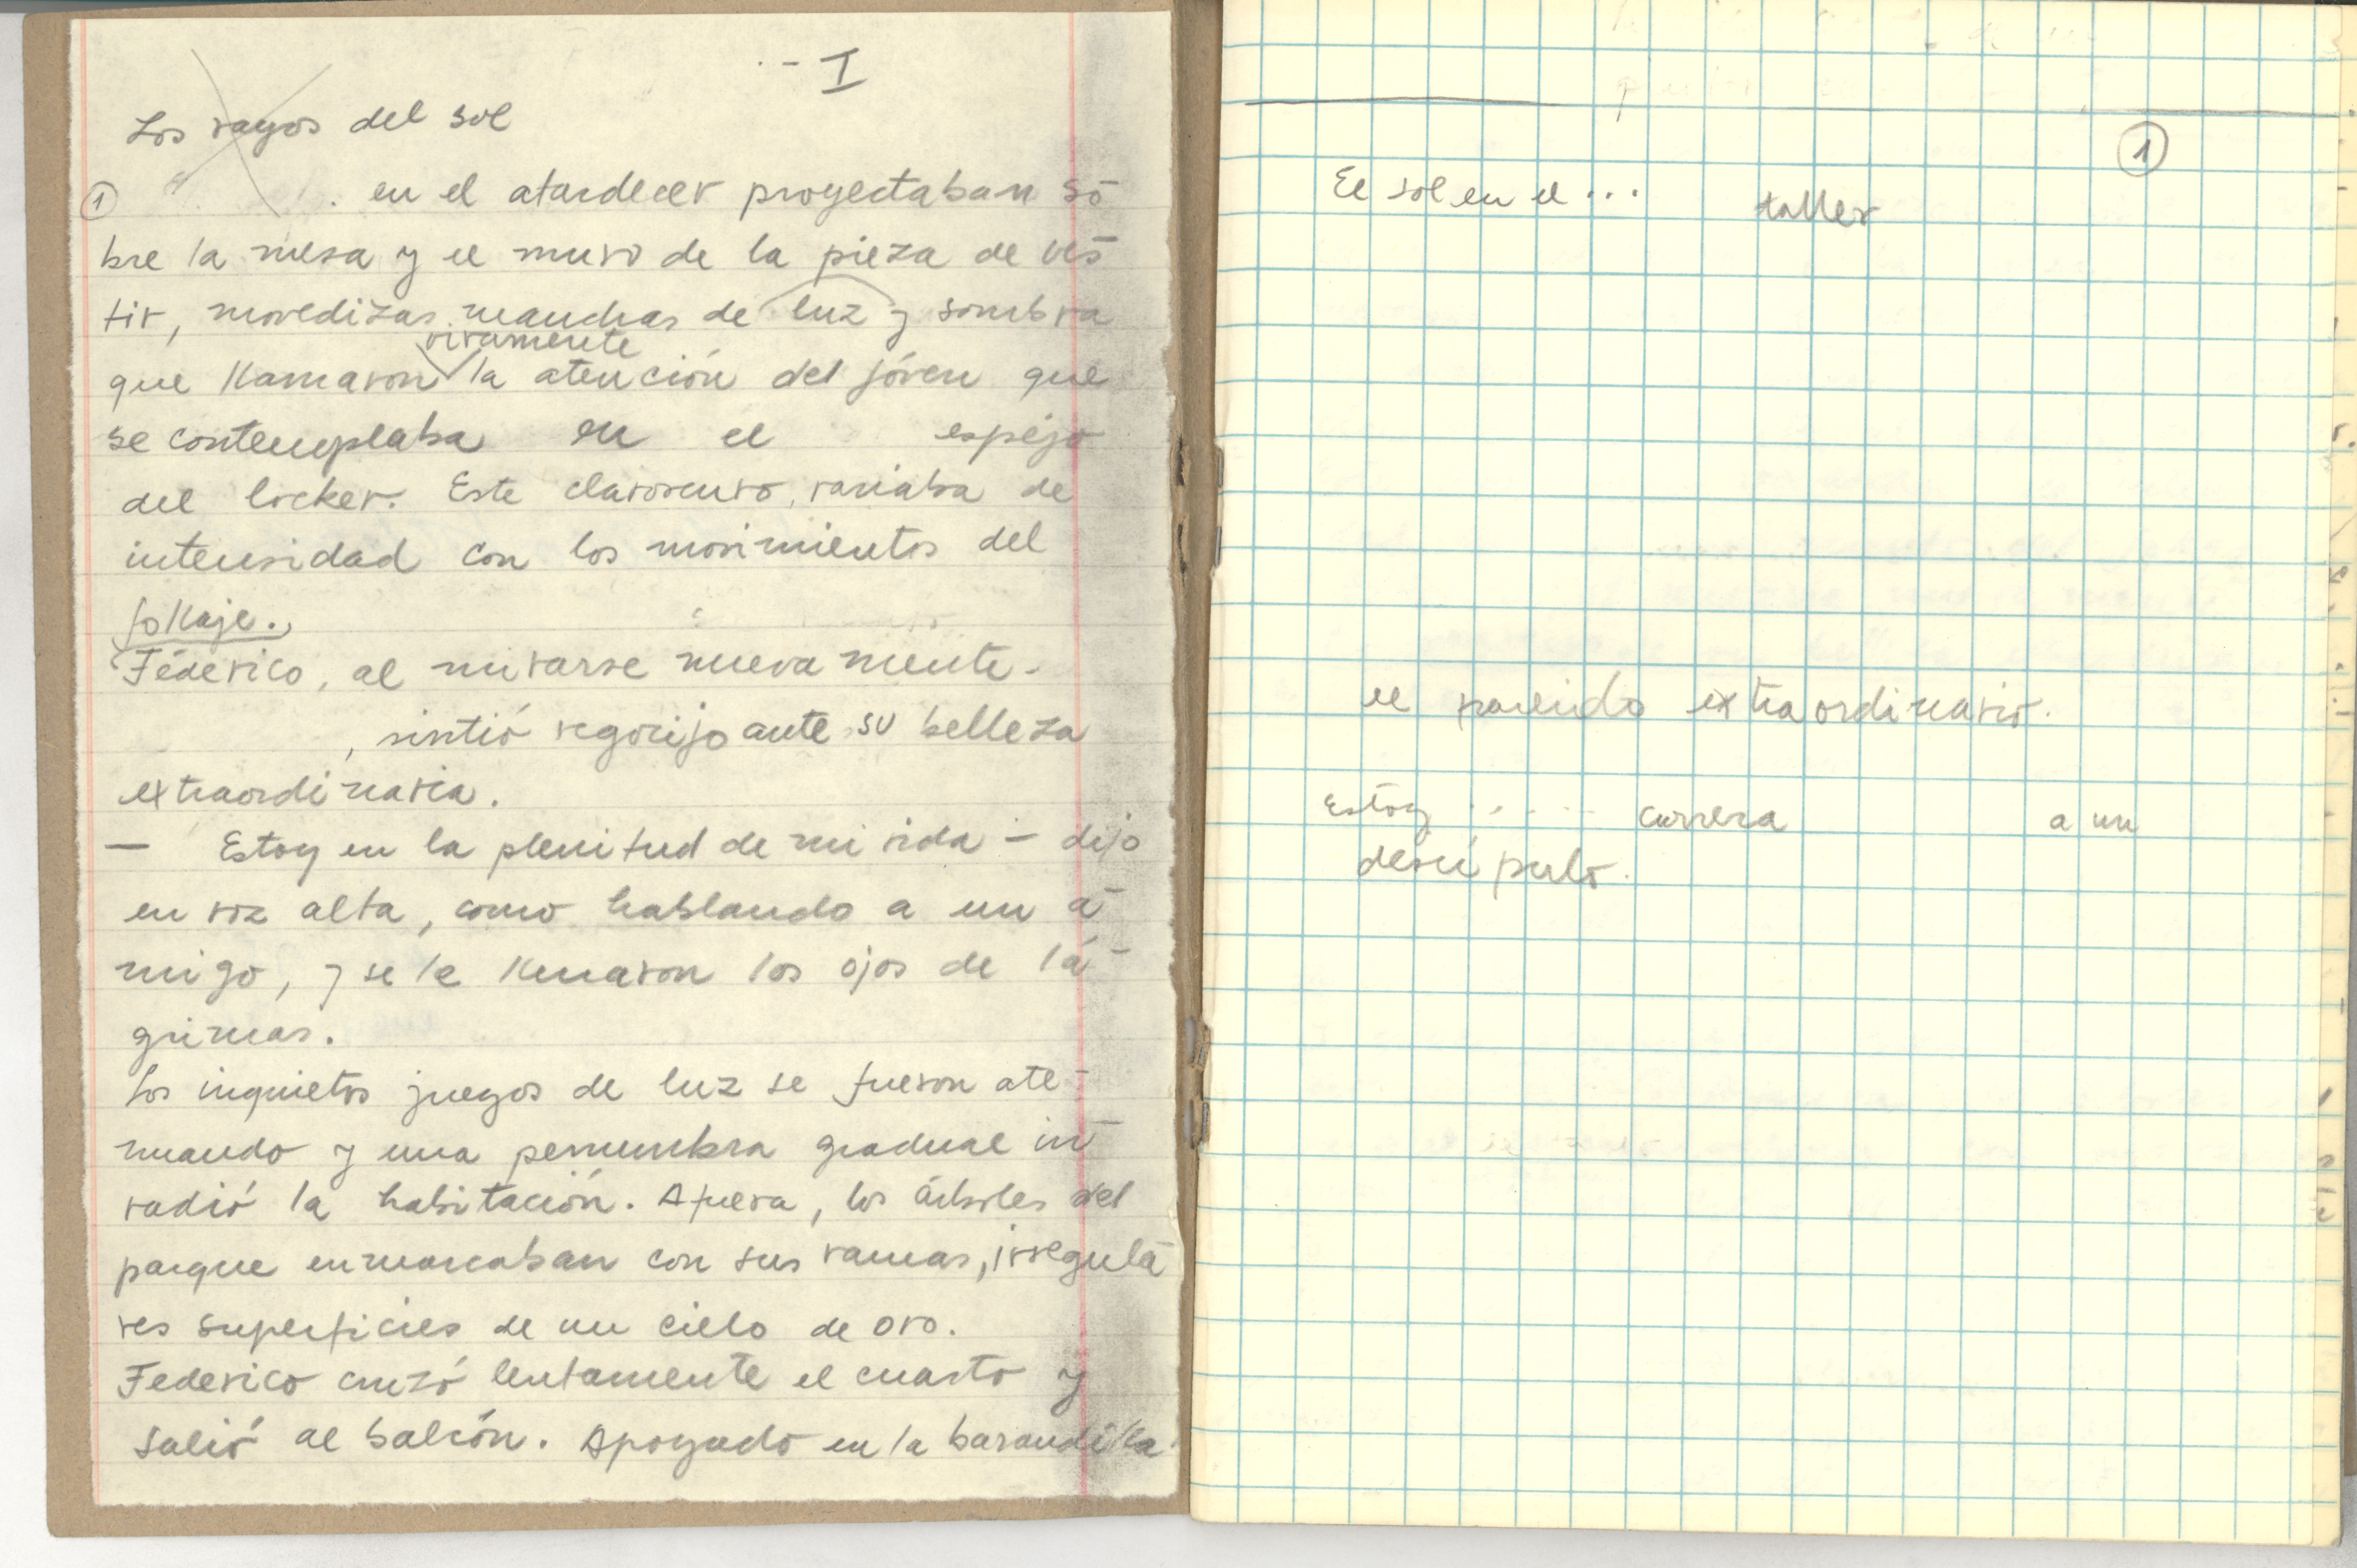 I
Los rayos del sol
1 en el atardecer proyectaban so
bre la mesa y el muro de la pieza de ves
tir, movedizas manchas de luz y sombra
vivamente
que llamaron la atención del jóven que
se contemplaba en el espejo
del locker. Este claroscuro, variaba de
intensidad con los movimientos del
follaje.
Federico, al mirarse nuevamente
, sintió regocijo ante su belleza
extraordinaria.
— Estoy en la plenitud de mi vida – dijo
en voz alta, como hablando a un a
migo, y se le llenaron los ojos de lá
grimas.
Los inquietos juegos de luz se fueron ate
nuando y una penumbra gradual in
vadió la habitación. Afuera, los árboles del
parque enmarcaban con sus ramas, irregula
res superficies de un cielo de oro.
Federico cruzó lentamente el cuarto y
salió al balcón. Apoyado en la barandilla
1
El sol en el ... taller
el parecido extraordinario.
Estoy ..... carrera a un
descípulo.